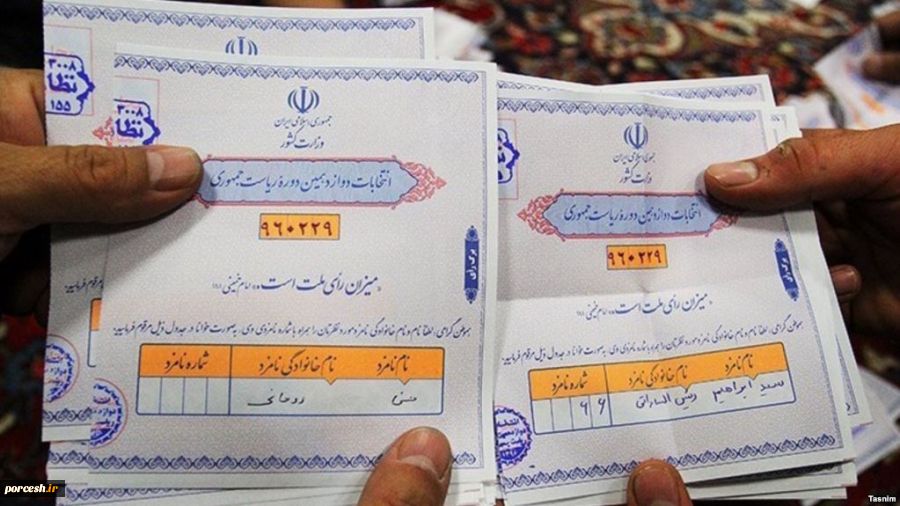 ۳۰۰۸
نظا
۱۵۵
۳۰۰۸
نظا
جمهوری اسلامی ایران
وزارت کشور
انتخابات دوازدهمین دوره ریاست جمهوری
۹۶۰۲۲۹
برگ رأی
«میزان رأی ملت است» امام خمینی (ره)
هموطن گرامی، لطفا نام و نام خانوادگی نامزد مورد نظرتان را همراه با شماره نامزدی وی، به صورت خوانا در جدول ذیل مرقوم فرمایید.
نام نامزد نام خانوادگی نامزد شماره نامزد
حسن روحانی
جمهوری اسلامی ایران
وزارت کشور
انتخابات دوازدهمین دوره ریاست جمهوری
۹۶۰۲۲۹
برگ رأی
«میزان رأی ملت است» امام خمینی (ره)
هموطن گرامی، لطفا نام و نام خانوادگی نامزد مورد نظرتان را همراه با شماره نامزدی وی، به صورت خوانا در جدول ذیل مرقوم فرمایید.
نام نامزد نام خانوادگی نامزد شماره نامزد
سید ابراهیم رئیس الساداتی ۶۶
porcesh.ir
Tasnim